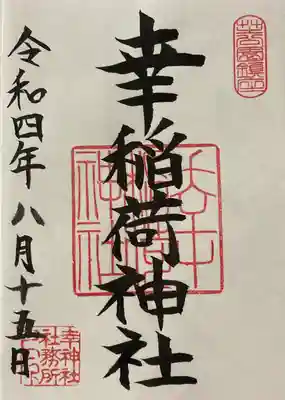 幸稲荷神社
令和四年八月十五日
幸神社
社務所